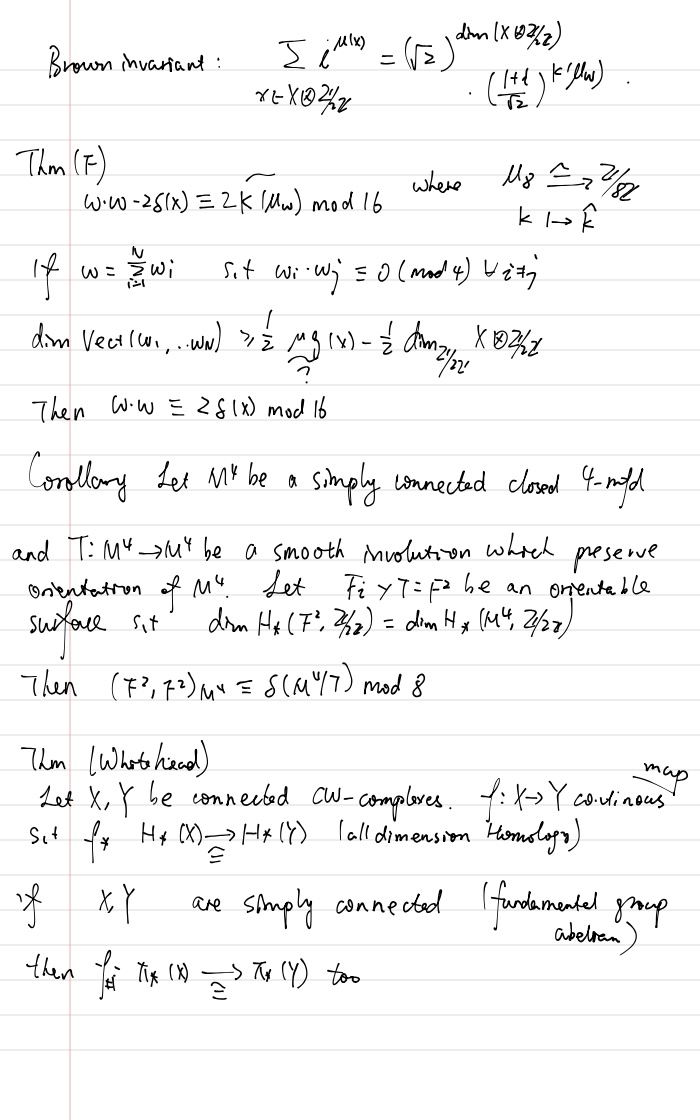 Brown invariant : Σ_{x∈X⊗ℤ/2ℤ} i^{μ(x)} = (√2)^{dim(X⊗ℤ/2ℤ)} · ((1+i)/√2)^{k(μ_w)} .
Thm (F)
w·w - 2δ(x) ≡ 2 \widehat{k(μ_w)} mod 16 where μ_8 ≅→ ℤ/8ℤ
k ↦ \hat{k}
if w = Σ_{i=1}^{N} w_i s.t w_i·w_j ≡ 0 (mod 4) ∀ i≠j
dim Vect(w_1, ..w_N) ≥ 1/2 μg(x) - 1/2 dim_{ℤ/2ℤ} X⊗ℤ/2ℤ
?
Then w·w ≡ 2δ(x) mod 16
Corollary Let M⁴ be a simply connected closed 4-mfd
and T: M⁴ → M⁴ be a smooth involution which preserve
orientation of M⁴. Let Fix T = F² be an orientable
surface s.t dim H_*(F², ℤ/2ℤ) = dim H_*(M⁴, ℤ/2ℤ)
Then (F², F²)_{M⁴} ≡ δ(M⁴/T) mod 8
Thm (Whitehead)
map
Let X, Y be connected CW-complexes. f: X → Y continous
s.t f_* H_*(X) ≅→ H_*(Y) (all dimension Homology)
if X, Y are simply connected (fundamental group
abelian)
then f_# π_*(X) ≅→ π_*(Y) too